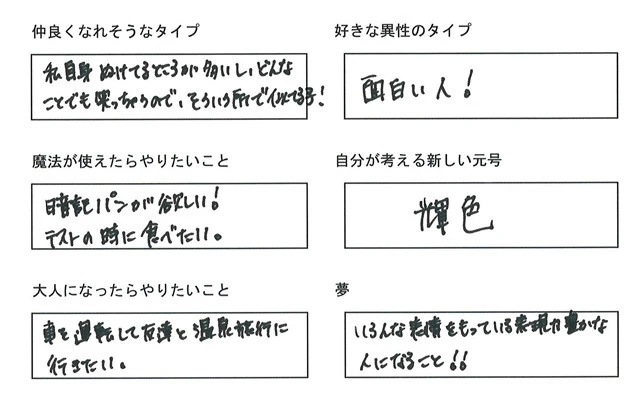 仲良くなれそうなタイプ
私自身ぬけてるところが多いし、どんな
ことでも笑っちゃうので、そういう所で似てる子!
好きな異性のタイプ
面白い人!
魔法が使えたらやりたいこと
暗記パンが欲しい!
テストの時に食べたい。
自分が考える新しい元号
輝色
大人になったらやりたいこと
車を運転して友達と温泉旅行に
行きたい。
夢
いろんな表情をもっている表現力豊かな
人になること!!